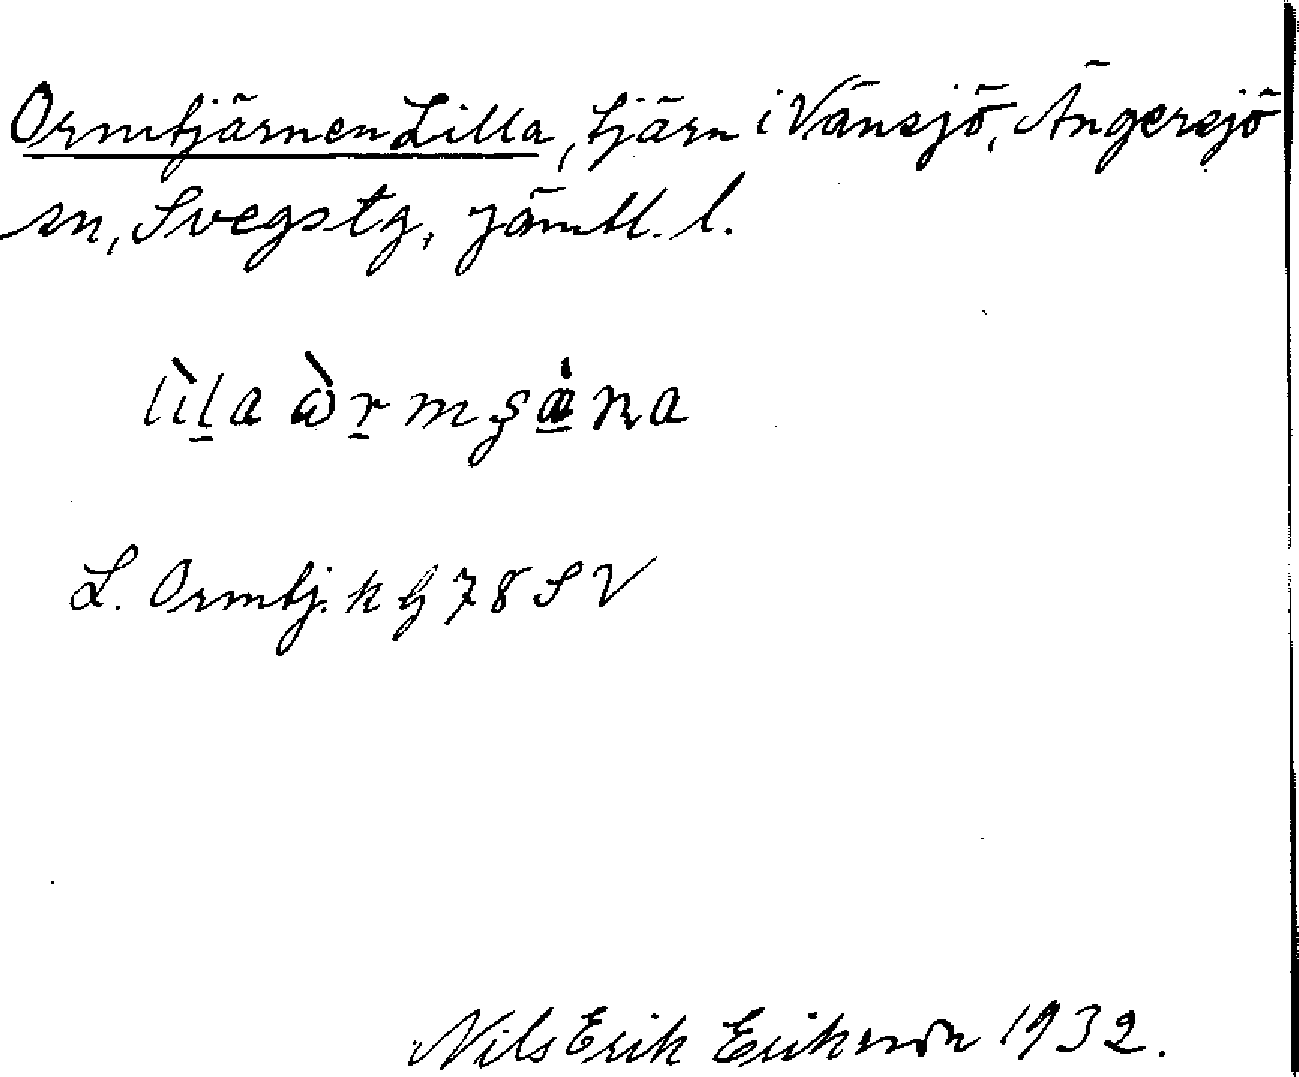 Ormtjärnen Lilla, tjärn i Vänsjö, Ängersjö
sn, Svegs tg, Jämtl. l.
lìḻa ɷ̀ṟmʂa̱na
L. Ormtj. k bl 78 SV
Nils Erik Eriksson 1932.